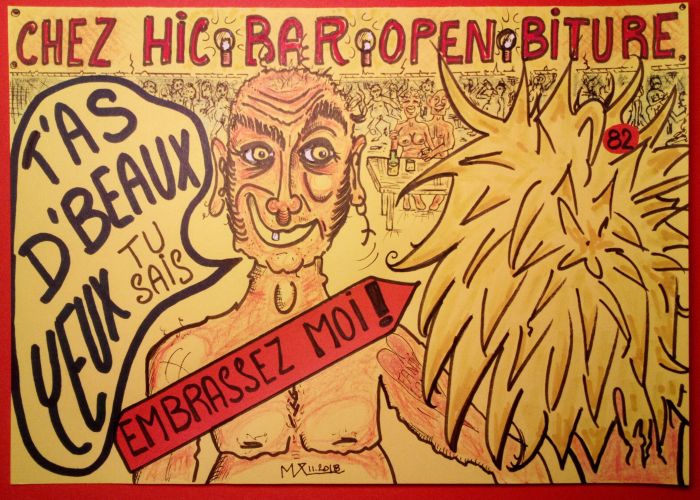 CHEZ HIC BAR OPEN BITURE
T'AS
D'BEAUX
YEUX TU
SAIS
82
EMBRASSEZ MOI!
MX 11.2018